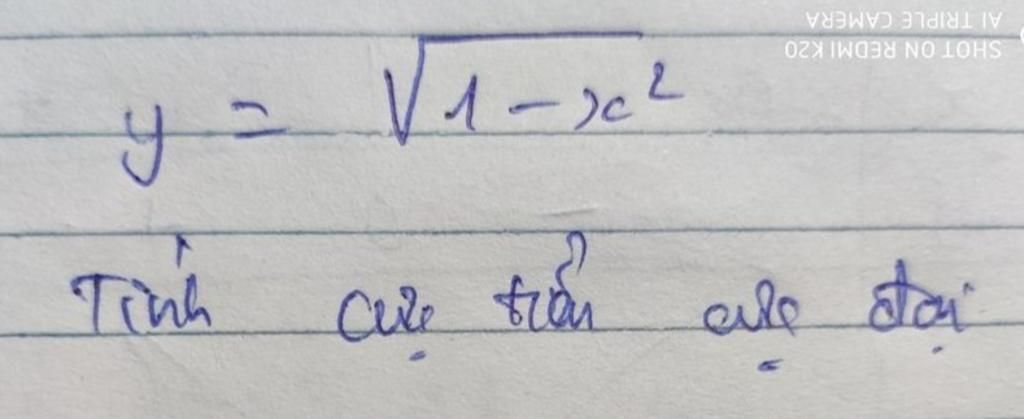 SHOT ON REDMI K20
AI TRIPLE CAMERA
y = √1 - x²
Tính cực tiểu cực đại